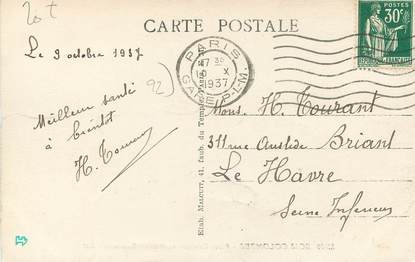 20 t
CARTE POSTALE
POSTES
30c
Le 9 octobre 1937
PARIS
17 30
X
1937
GARE P.L.M.
92)
Meilleur santé
à bientôt
H. Tourant
Mons. H. Tourant
rue Aristide Briant
Le Havre
Seine Inférieure
Etab. MALCUIT, 41, faub. du Temple,